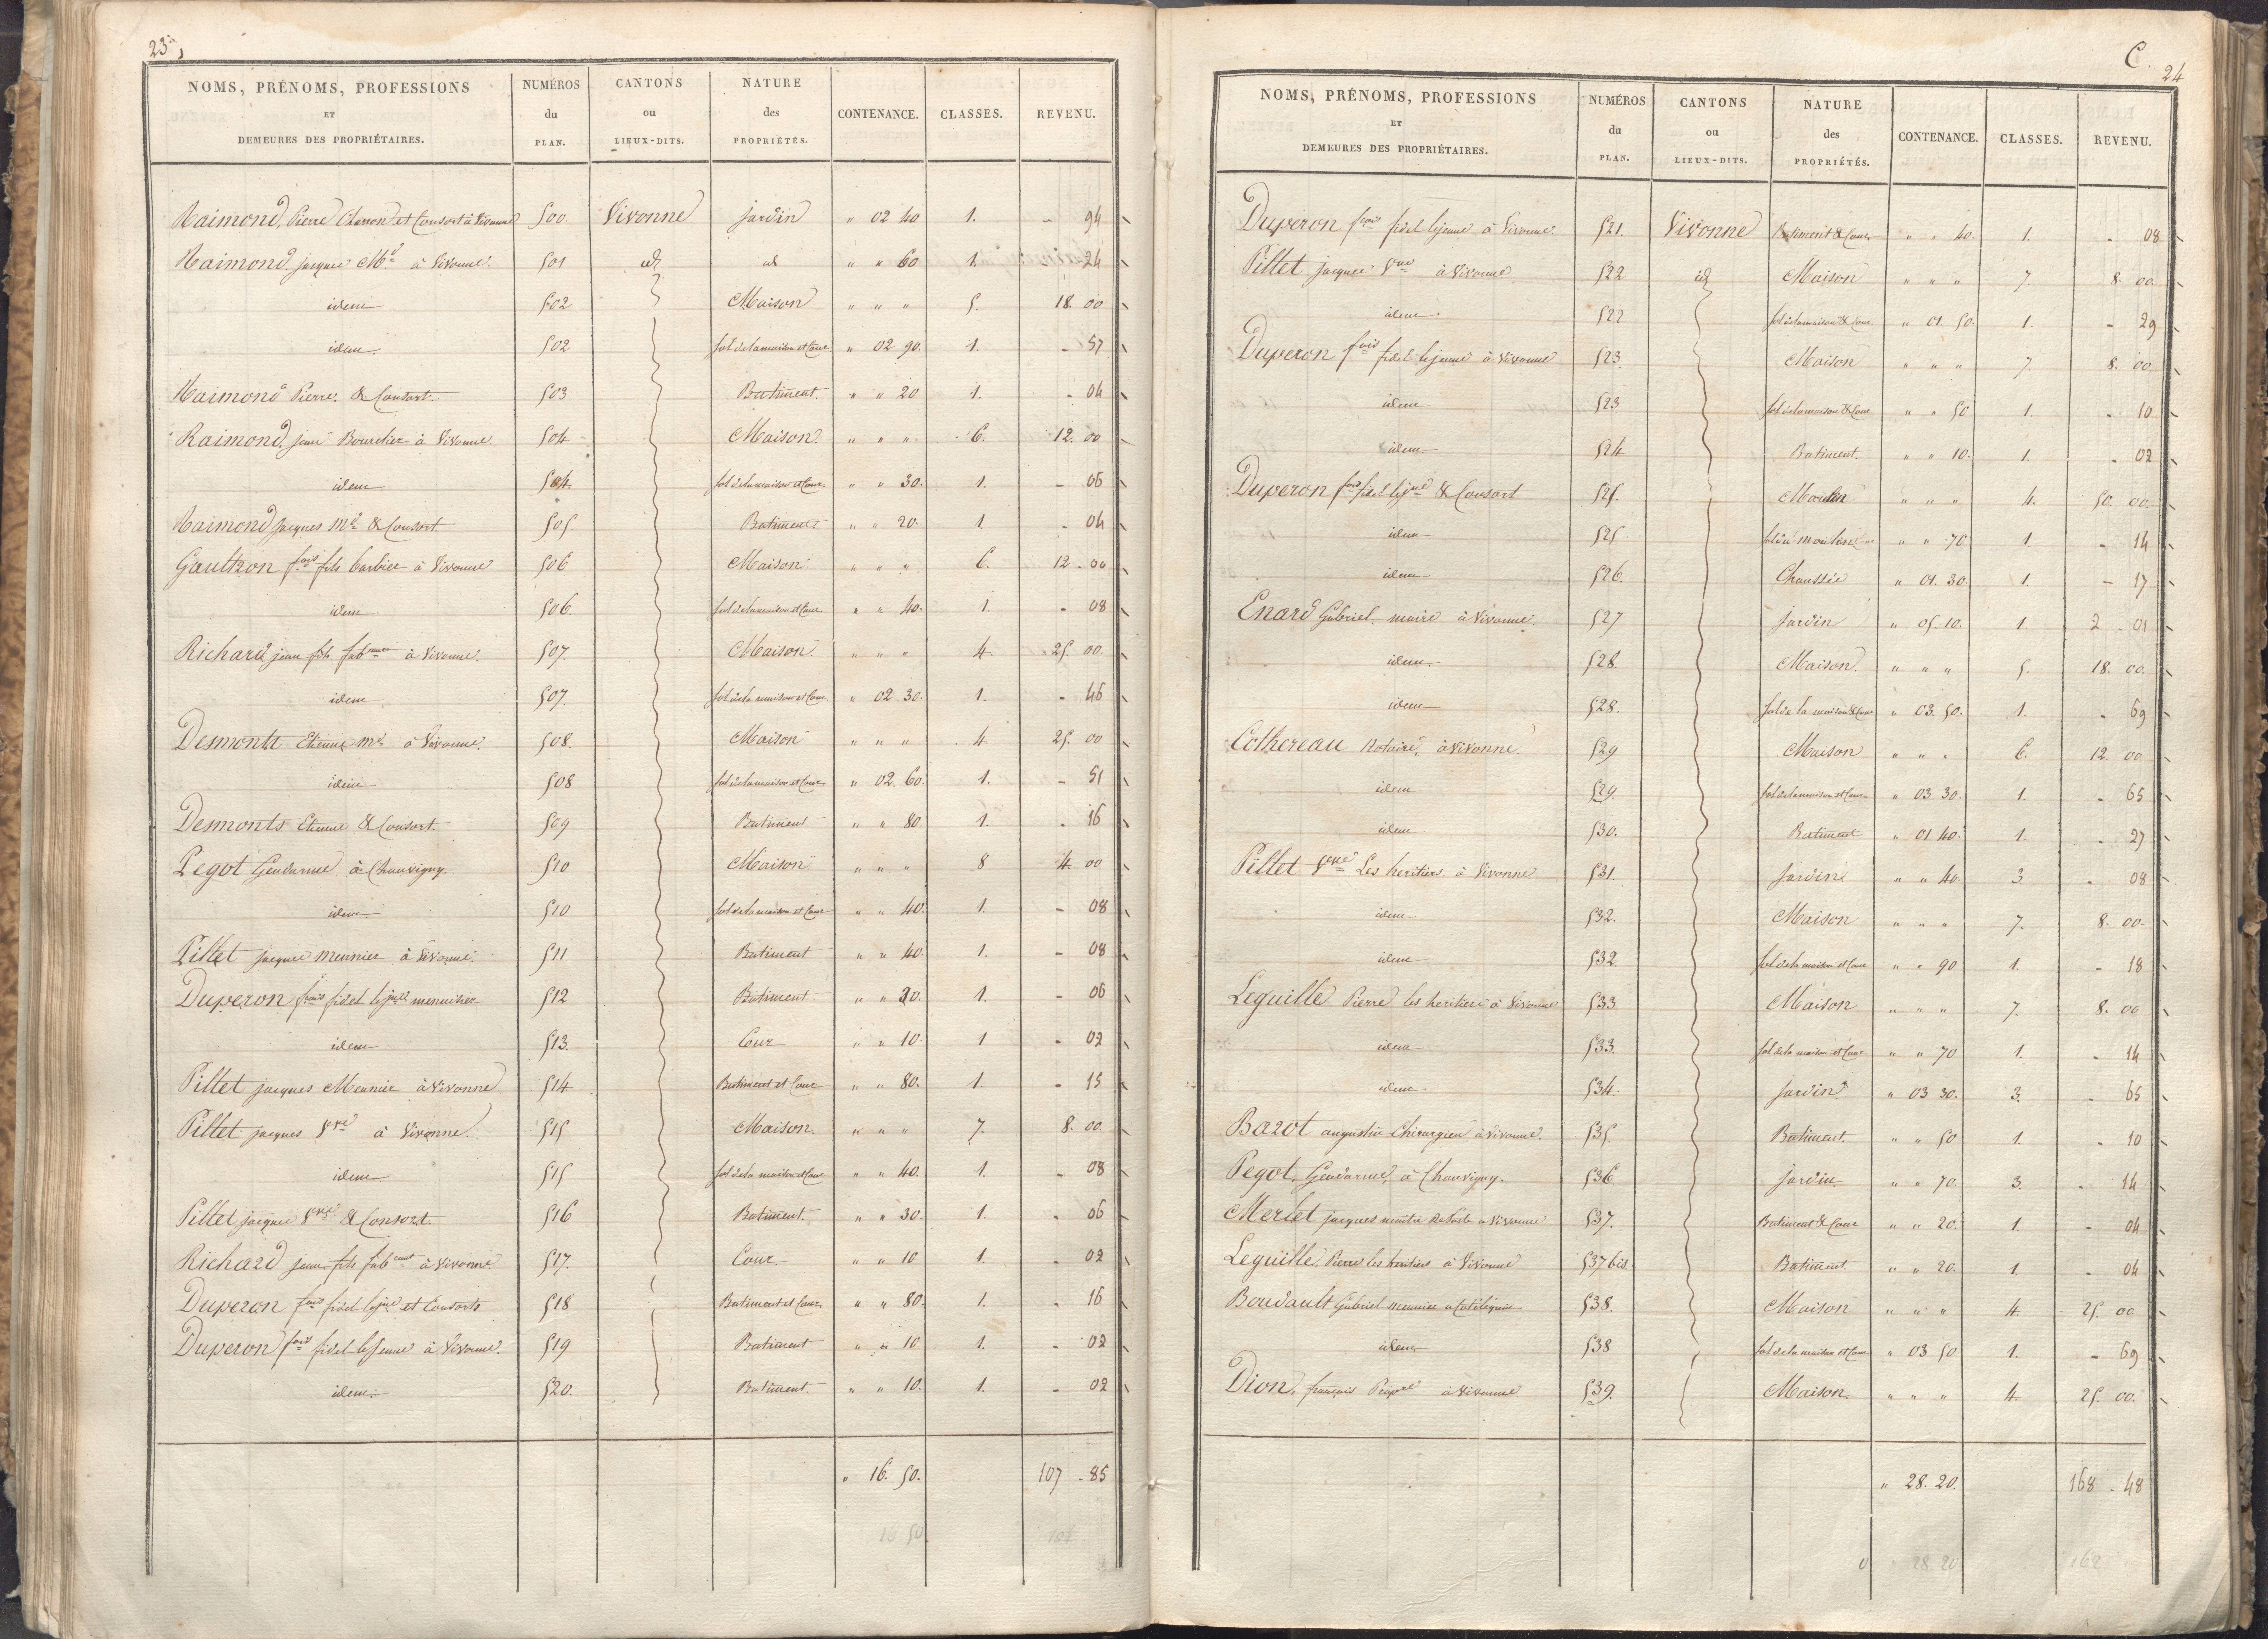 23
NOMS, PRÉNOMS, PROFESSIONS ET DEMEURES DES PROPRIÉTAIRES. NUMÉROS du PLAN. CANTONS ou LIEUX-DITS. NATURE des PROPRIÉTÉS. CONTENANCE. CLASSES. REVENU.
Raimond, Pierre Charron et Consort à Vivonne 500 Vivonne jardin " 02 40 1. - 94
Raimond, jacques Md à Vivonne 501 id id " " 60 1. - 24
idem 502 Maison " " " 5. 18. 00
idem 502 sol de la maison et Cour " 02 90. 1. - 57
Raimond Pierre & Consort. 503 Batiment. " " 20 1. - 04
Raimond, jean Bourelier à Vivonne 504 Maison " " " 6. 12. 00
idem 504. sol de la maison et Cour " " 30. 1. - 06
Raimond jacques Md & Consort 505 Batiment " " 20. 1 - 04
Gaultron fois fils barbier à Vivonne 506 Maison " " " 6. 12 - 00
idem 506. sol de la maison et Cour " " 40. 1. - 08
Richard jean fils à Vivonne. 507. Maison " " " 4 25. 00
idem 507. sol de la maison et Cour " 02 30. 1. - 46
Desmonts Etienne md à Vivonne. 508. Maison " " " 4 25. 00
idem 508 sol de la maison et Cour " 02. 60. 1. - 51
Desmonts Etienne & Consort. 509 Batiment " " 80. 1. - 16
Pegot Gendarme à Chauvigny. 510 Maison " " " 8 4. 00
idem 510 sol de la maison et Cour " " 40. 1. - 08
Pillet jacques meunier à Vivonne. 511 Batiment " " 40. 1. - 08
Duperon fois fidel le jne menuisier 512 Batiment " " 30. 1. - 06
idem 513. Cour " " 10. 1 - 02
Pillet jacques Meunier à Vivonne 514 Batiment et Cour " " 80. 1. - 15
Pillet jacques Vve à Vivonne. 515 Maison. " " " 7. 8. 00
idem 515 sol de la maison et Cour " " 40. 1. - 08
Pillet jacques Vve & Consort. 516 Batiment. " " 30. 1. - 06
Richard jean fils à Vivonne 517. Cour " " 10 1. - 02
Duperon fois fidel le jne et Consorts 518 Batiment et Cour " " 80. 1. - 16
Duperon fois fidel le Jeune à Vivonne. 519 Batiment " " 10 1. - 02
idem 520. Batiment. " " 10. 1. - 02
" 16. 50. 107 - 85
16 50
C. 24
NOMS, PRÉNOMS, PROFESSIONS ET DEMEURES DES PROPRIÉTAIRES. NUMÉROS du PLAN. CANTONS ou LIEUX-DITS. NATURE des PROPRIÉTÉS. CONTENANCE. CLASSES. REVENU.
Duperon fois fidel le jeune à Vivonne. 521. Vivonne Batiment & Cour " " 40. 1. - 08
Pillet jacques Vve à Vivonne 522 id Maison " " " 7. 8. 00
idem 522 sol de la maison & Cour " 01. 50. 1. - 29
Duperon fois fidel le jeune à Vivonne 523. Maison " " " 7. 8. 00
idem 523 sol de la maison & Cour " " 50 1. - 10
idem 524 Batiment. " " 10. 1. - 02
Duperon fois fidel le jne & Consort 525. Moulin " " " 4. 50. 00
idem 525 sol du moulin " " 70 1 - 14
idem 526. Chaussée " 01. 30. 1. - 17
Enard Gabriel, maire à Vivonne. 527 jardin " 05. 10. 1. 2 - 01
idem 528 Maison. " " " 5. 18. 00
idem 528. sol de la maison & Cour " 03. 50. 1. - 69
Cothereau Notaire, à Vivonne 529 Maison " " " 6. 12. 00
idem 529. sol de la maison et Cour " 03 30. 1. - 65
idem 530. Batiment " 01 40. 1. - 27
Pillet Vve Les heritiers à Vivonne 531. Jardin " " 40. 3 - 08
idem 532. Maison " " " 7. 8. 00.
idem 532 sol de la maison et Cour " " 90 1. - 18
Leguille Pierre les heritiers à Vivonne 533 Maison " " " 7. 8. 00
idem 533. sol de la maison et Cour " " 70 1. - 14
idem 534 jardin " 03 30. 3. - 65
Bazot augustin Chirurgien à Vivonne. 535. Batiment. " " 50 1. - 10
Pegot, Gendarme, à Chauvigny. 536 jardin " " 70. 3. - 14
Merlet jacques maitre de Poste à Vivonne 537. Batiment & Cour " " 20. 1 - 04
Leguille, Pierre les heritiers à Vivonne 537 bis. Batiment. " " 20. 1. - 04
Boudault Gabriel meunier 538. Maison " " " 4. 25. 00
idem 538 sol de la maison et Cour " 03 50 1. - 69
Dion, français à Vivonne 539. Maison. " " " 4. 25. 00.
" 28. 20. 168 - 48
28 20